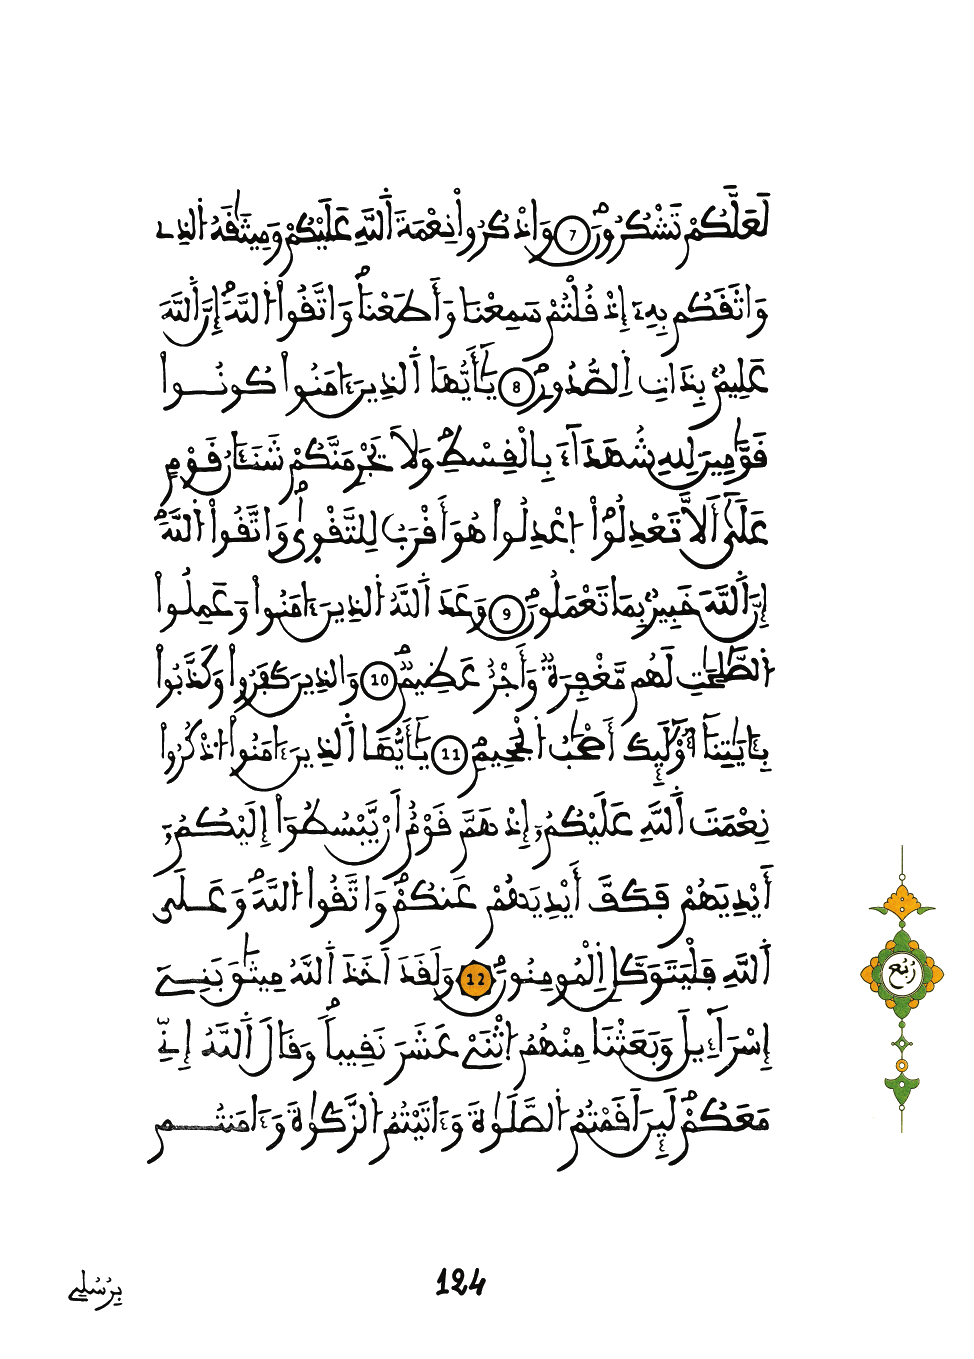 لَعَلَّكُمْ تَشْكُرُونَ 7 وَاذْكُرُوا نِعْمَةَ اَللَّهِ عَلَيْكُمْ وَمِيثَٰقَهُ اُلذِے
وَاثَقَكُم بِهِۦٓ إِذْ قُلْتُمْ سَمِعْنَا وَأَطَعْنَاۖ وَاتَّقُوا اُللَّهَۖ إِنَّ اَللَّهَ
عَلِيمُۢ بِذَاتِ اِلصُّدُورِۖ 8 يَٰٓأَيُّهَا اَلذِينَ ءَامَنُوا كُونُوا
قَوَّٰمِينَ لِلهِ شُهَدَآءَ بِالْقِسْطِۖ وَلَا يَجْرِمَنَّكُمْ شَنَـَٔانُ قَوْمٍ
عَلَىٰٓ أَلَّا تَعْدِلُواۖ اُ۪عْدِلُوا هُوَ أَقْرَبُ لِلتَّقْوٜىٰۖ وَاتَّقُوا اُللَّهَۖ
إِنَّ اَللَّهَ خَبِيرُۢ بِمَا تَعْمَلُونَۖ 9 وَعَدَ اَللَّهُ اُلذِينَ ءَامَنُوا وَعَمِلُوا
اُلصَّٰلِحَٰتِ لَهُم مَّغْفِرَةٞ وَأَجْرٌ عَظِيمٞۖ 10 وَالذِينَ كَفَرُوا وَكَذَّبُوا
بِـَٔايَٰتِنَآ أُوْلَٰٓئِكَ أَصْحَٰبُ اُلْجَحِيمِۖ 11 يَٰٓأَيُّهَا اَلذِينَ ءَامَنُوا اُ۟ذْكُرُوا
نِعْمَتَ اَللَّهِ عَلَيْكُمُۥٓ إِذْ هَمَّ قَوْمٌ أَنْ يَّبْسُطُوٓا إِلَيْكُمُۥٓ
أَيْدِيَهُمْ فَكَفَّ أَيْدِيَهُمْ عَنكُمْۖ وَاتَّقُوا اُللَّهَۖ وَعَلَى
اَللَّهِ فَلْيَتَوَكَّلِ اِلْمُومِنُونَۖ 12 وَلَقَدَ اَخَذَ اَللَّهُ مِيثَٰقَ بَنِےٓ
إِسْرَآءِيلَ وَبَعَثْنَا مِنْهُمُ اُ۪ثْنَےْ عَشَرَ نَقِيباٗۖ وَقَالَ اَللَّهُ إِنِّے
مَعَكُمْۖ لَئِنَ اَقَمْتُمُ اُلصَّلَوٰةَ وَءَاتَيْتُمُ اُلزَّكَوٰةَ وَءَامَنتُم
رُبُع
بِرُسُلِے
124